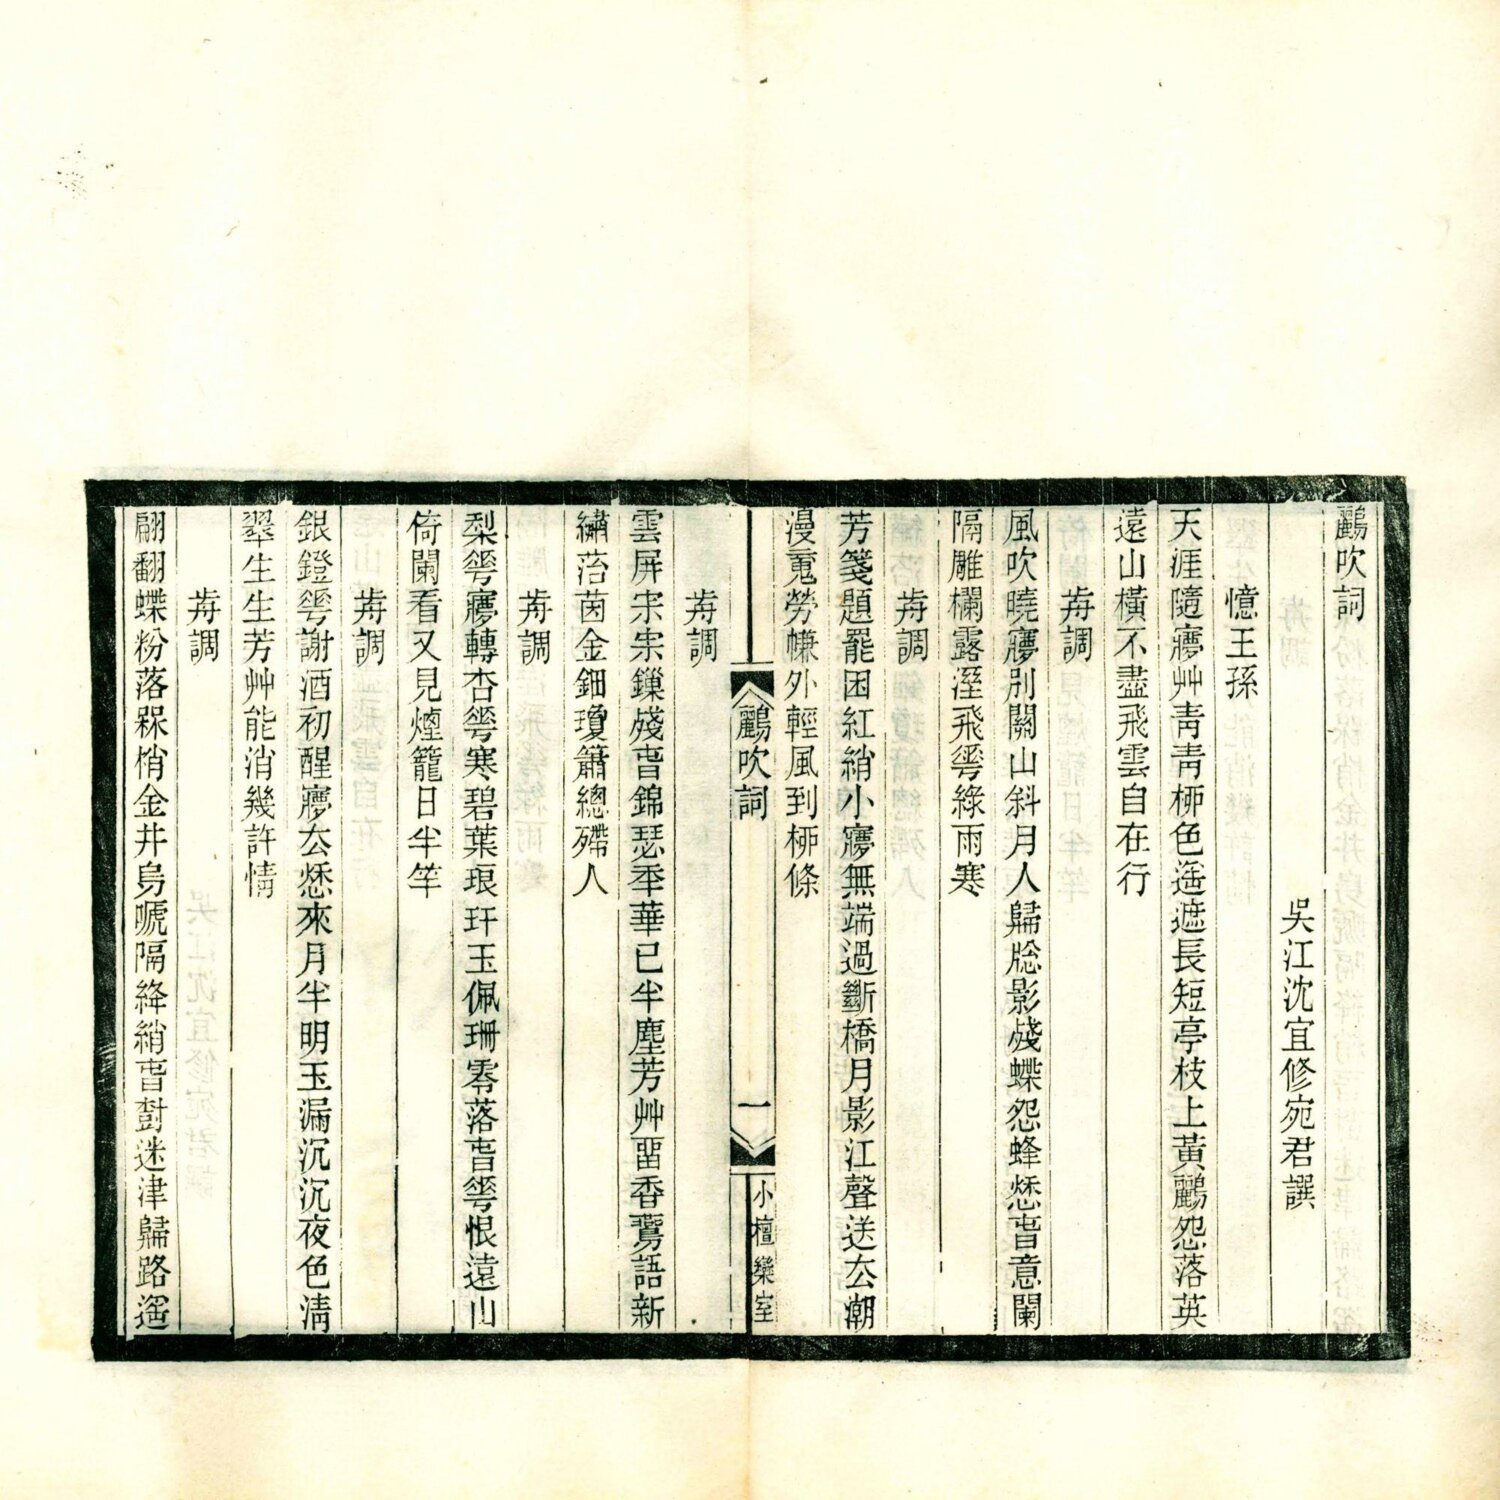 鸝吹詞
吳江沈宜修宛君譔
憶王孫
天涯隨㝱艸青青桺色遙遮長短亭枝上黃鸝怨落英
遠山橫不盡飛雲自在行
歬調
風吹曉㝱別關山斜月人歸牕影殘蝶怨蜂愁旾意闌
隔雕欄露溼飛𠌶綠雨寒
歬調
芳箋題罷困紅綃小㝱無端過斷橋月影江聲送厺潮
漫䰟勞㡘外輕風到桺條
鸝吹詞
一
小檀欒室
歬調
雲屏宋宋鏁殘旾錦瑟秊華已半塵芳艸畱香鶯語新
繡菭茵金鈿瓊簫總殢人
歬調
梨𠌶㝱轉杏𠌶寒碧葉琅玕玉佩珊零落旾𠌶恨遠山
倚闌看又見煙籠日半竿
歬調
銀鐙𠌶謝酒初醒㝱厺愁來月半明玉漏沉沉夜色清
翠生生芳艸能消幾許情
歬調
翩翻蝶粉落槑梢金井烏嗁隔絳綃旾尌迷津歸路遙